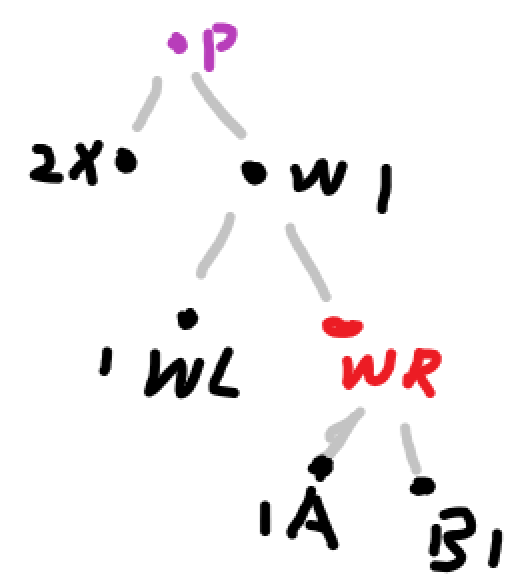 P
2X W 1
1 WL WR
1A B1